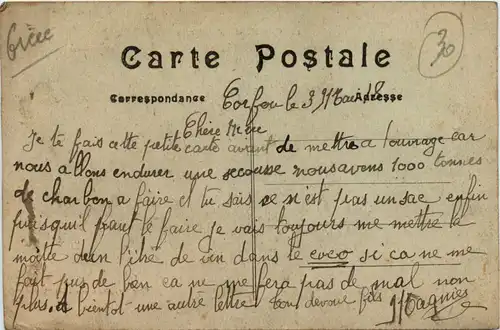 Grèce
30
Carte Postale
Correspondance
Adresse
Corfou le 3 Mai 18
Chère Mère
Je te fais cette petite carte avant de mettre a louvrage car
nous allons endurer une secouse nous avons 1000 tonnes
de charbon a faire et tu sais ce n'est pas un sac enfin
puisquil faut le faire je vais toujours me mettre la
moitie dun litre de vin dans le coco si ca ne me
fait pas de bien ca ne me fera pas de mal non
plus, a bientot une autre lettre ton devoué fils